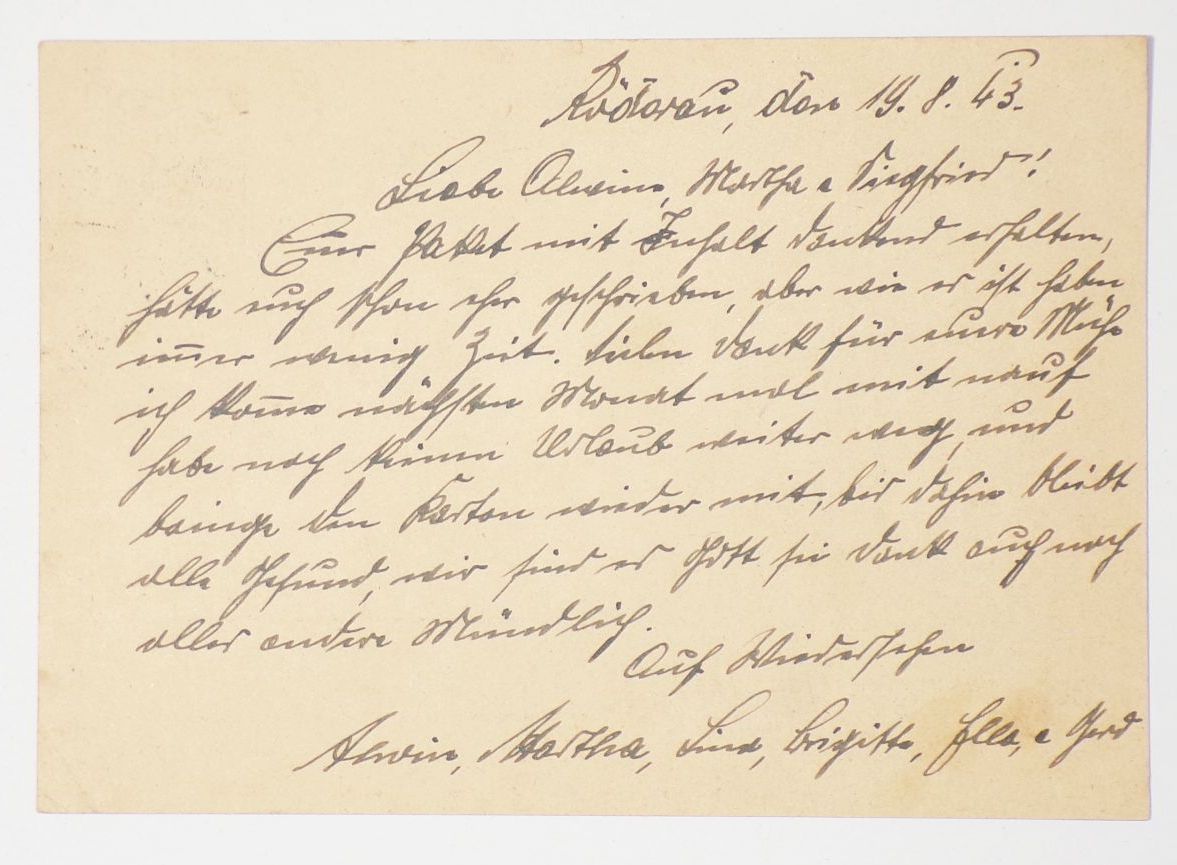 Röderau, den 19. 8. 43.
Liebe Alwine, Martha u Siegfried!
Euer Paket mit Inhalt dankend erhalten,
hätte euch schon eher geschrieben, aber wie es ist haben
immer wenig Zeit. Vielen Dank für eure Mühe
ich komme nächsten Monat mal mit nauf
habe noch keinen Urlaub weiter weg, und
bringe den Karton wieder mit, bis dahin bleibt
alle Gesund, wir sind es Gott sei Dank auch noch
alles andere Mündlich.
Auf Wiedersehen
Alwin, Martha, Brigitte, Ella, u Gerd